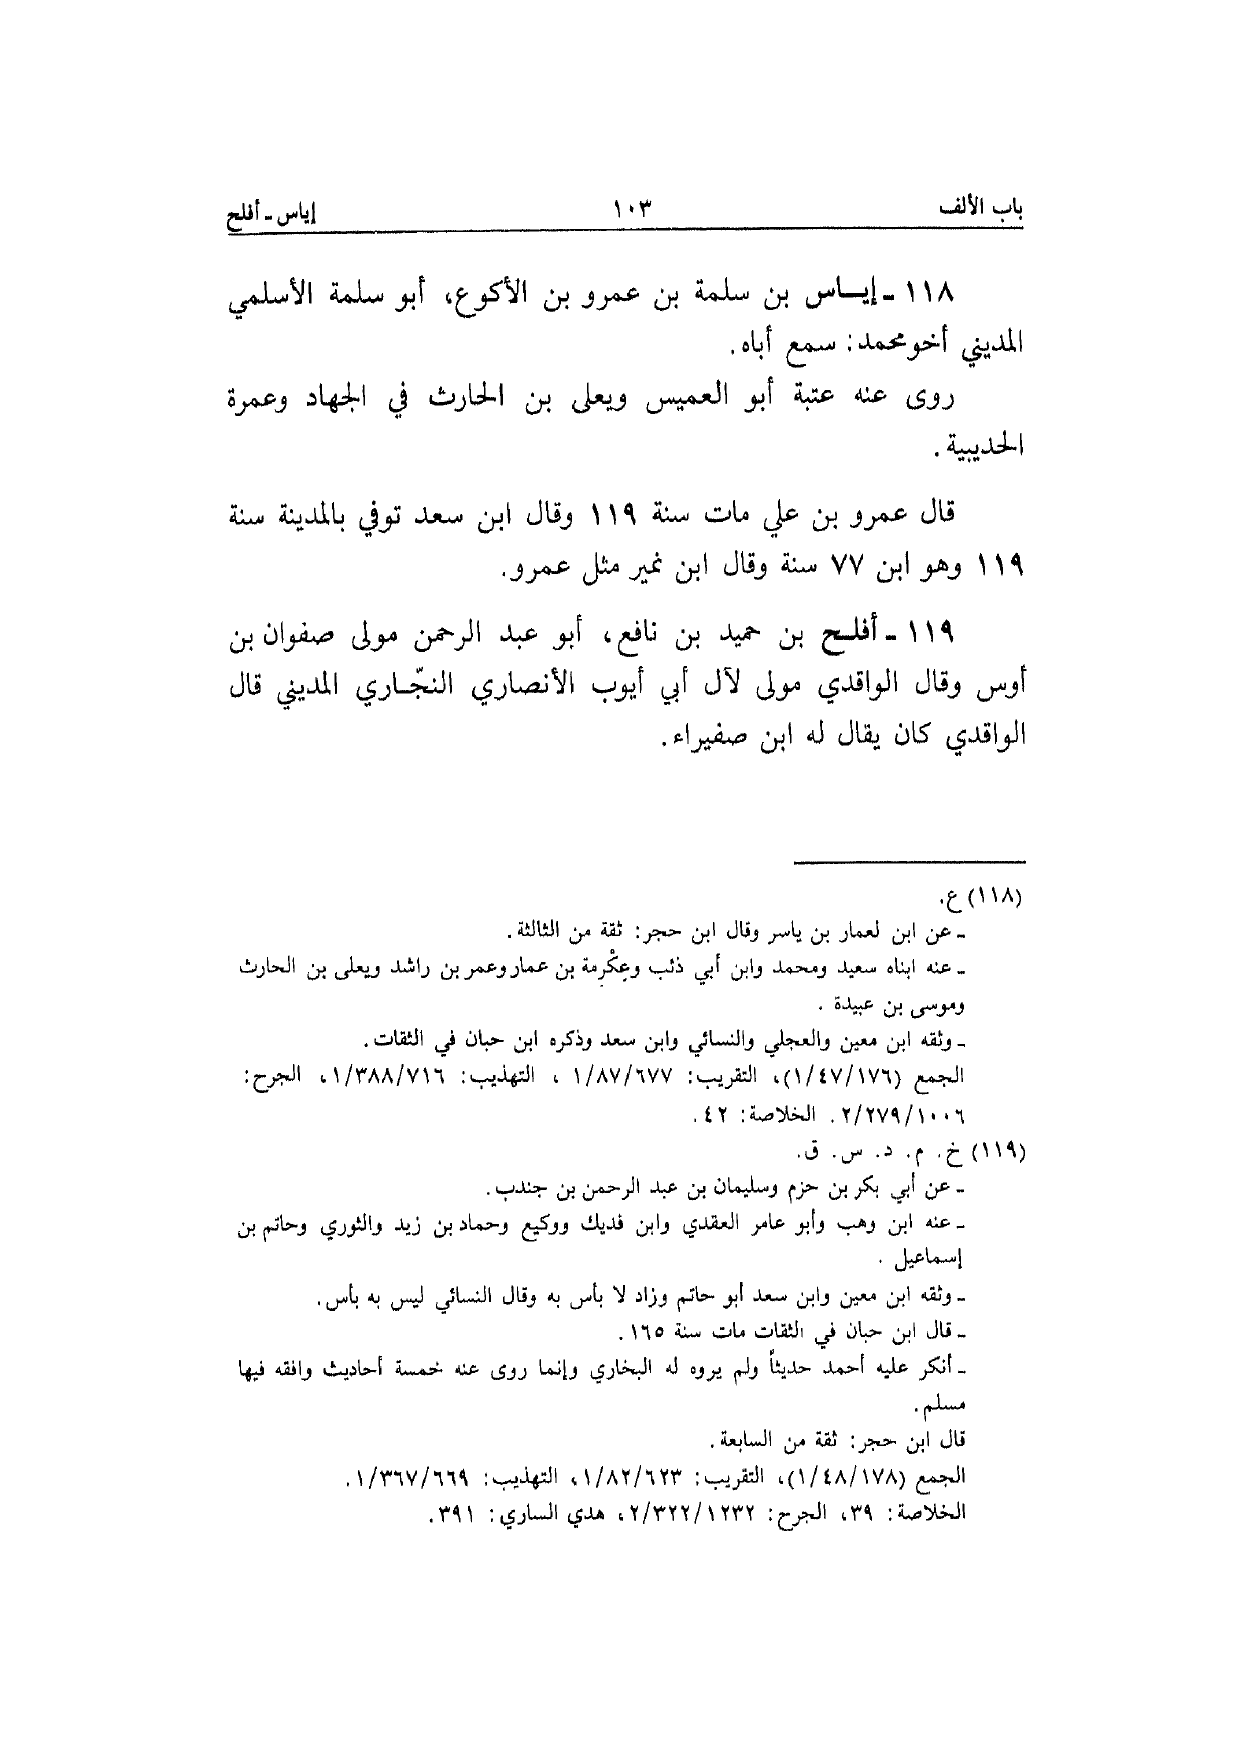 باب الألف ١٠٣ إياس ـ أفلح
١١٨ ـ إيـاس بن سلمة بن عمرو بن الأكوع، أبو سلمة الأسلمي
المديني أخو محمد: سمع أباه.
روى عنه عتبة أبو العميس ويعلى بن الحارث في الجهاد وعمرة
الحديبية.
قال عمرو بن علي مات سنة ١١٩ وقال ابن سعد توفي بالمدينة سنة
١١٩ وهو ابن ٧٧ سنة وقال ابن نمير مثل عمرو.
١١٩ ـ أفلـح بن حميد بن نافع، أبو عبد الرحمن مولى صفوان بن
أوس وقال الواقدي مولى لآل أبي أيوب الأنصاري النجّـاري المديني قال
الواقدي كان يقال له ابن صفيراء.
(١١٨) ع.
ـ عن ابن لعمار بن ياسر وقال ابن حجر: ثقة من الثالثة.
ـ عنه ابناه سعيد ومحمد وابن أبي ذئب وعِكْرمة بن عمار وعمر بن راشد ويعلى بن الحارث
وموسى بن عبيدة.
ـ وثقه ابن معين والعجلي والنسائي وابن سعد وذكره ابن حبان في الثقات.
الجمع (١/٤٧/١٧٦)، التقريب: ١/٨٧/٦٧٧، التهذيب: ١/٣٨٨/٧١٦، الجرح:
٢/٢٧٩/١٠٠٦. الخلاصة: ٤٢.
(١١٩) خ. م. د. س. ق.
ـ عن أبي بكر بن حزم وسليمان بن عبد الرحمن بن جندب.
ـ عنه ابن وهب وأبو عامر العقدي وابن فديك ووكيع وحماد بن زيد والثوري وحاتم بن
إسماعيل.
ـ وثقه ابن معين وابن سعد أبو حاتم وزاد لا بأس به وقال النسائي ليس به بأس.
ـ قال ابن حبان في الثقات مات سنة ١٦٥.
ـ أنكر عليه أحمد حديثاً ولم يروه له البخاري وإنما روى عنه خمسة أحاديث وافقه فيها
مسلم.
قال ابن حجر: ثقة من السابعة.
الجمع (١/٤٨/١٧٨)، التقريب: ١/٨٢/٦٢٣، التهذيب: ١/٣٦٧/٦٦٩.
الخلاصة: ٣٩، الجرح: ٢/٣٢٢/١٢٣٢، هدي الساري: ٣٩١.